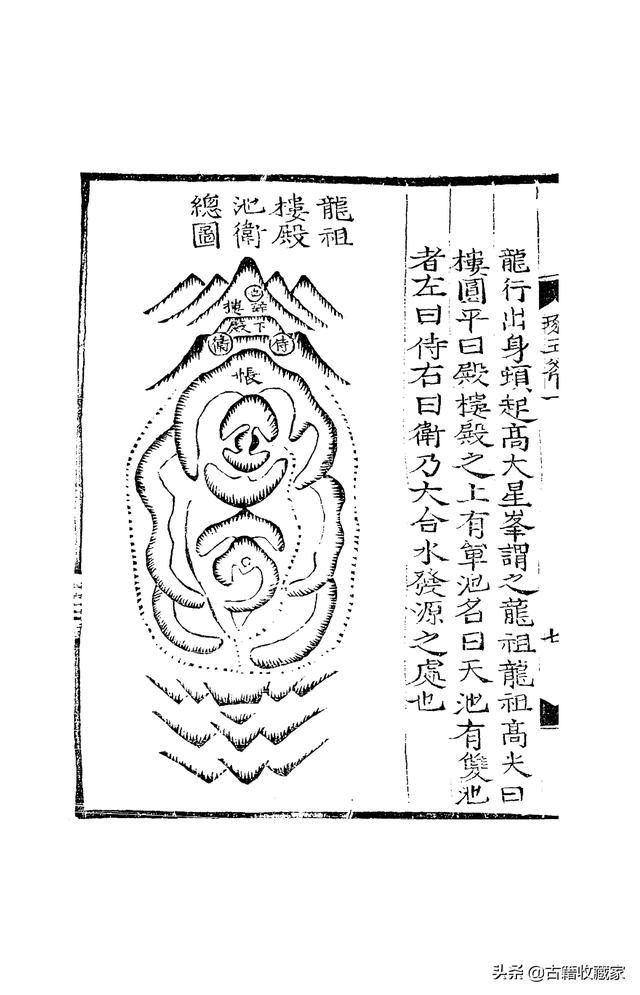 琢玉斧一
七
龍行出身頓起高大星峯謂之龍祖龍祖高尖曰
樓圓平曰殿樓殿之上有單池名曰天池有雙池
者左曰侍右曰衛乃大合水發源之處也
龍祖
樓殿
池衛
總圖
樓
殿下
侍
衛
帳
头条 @古籍收藏家